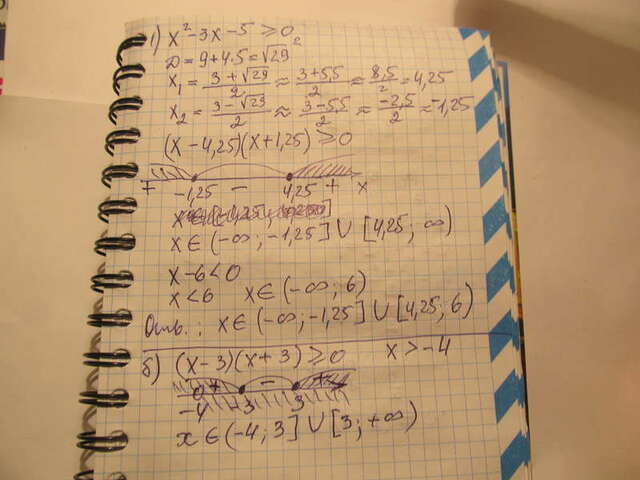 1) x² - 3x - 5 ≥ 0
D = 9 + 4·5 = √29²
x₁ = (3 + √29)/2 ≈ (3 + 5,5)/2 ≈ 8,5/2 = 4,25
x₂ = (3 - √29)/2 ≈ (3 - 5,5)/2 ≈ (-2,5)/2 ≈ -1,25
(x - 4,25)(x + 1,25) ≥ 0
+ -1,25 - 4,25 + x
x ∈ (-∞; -1,25] ∪ [4,25; ∞)
x - 6 < 0
x < 6 x ∈ (-∞; 6)
Отв.: x ∈ (-∞; -1,25] ∪ [4,25; 6)
б) (x - 3)(x + 3) ≥ 0 x > -4
+ - +
-4 -3 3
x ∈ (-4; 3] ∪ [3; +∞)